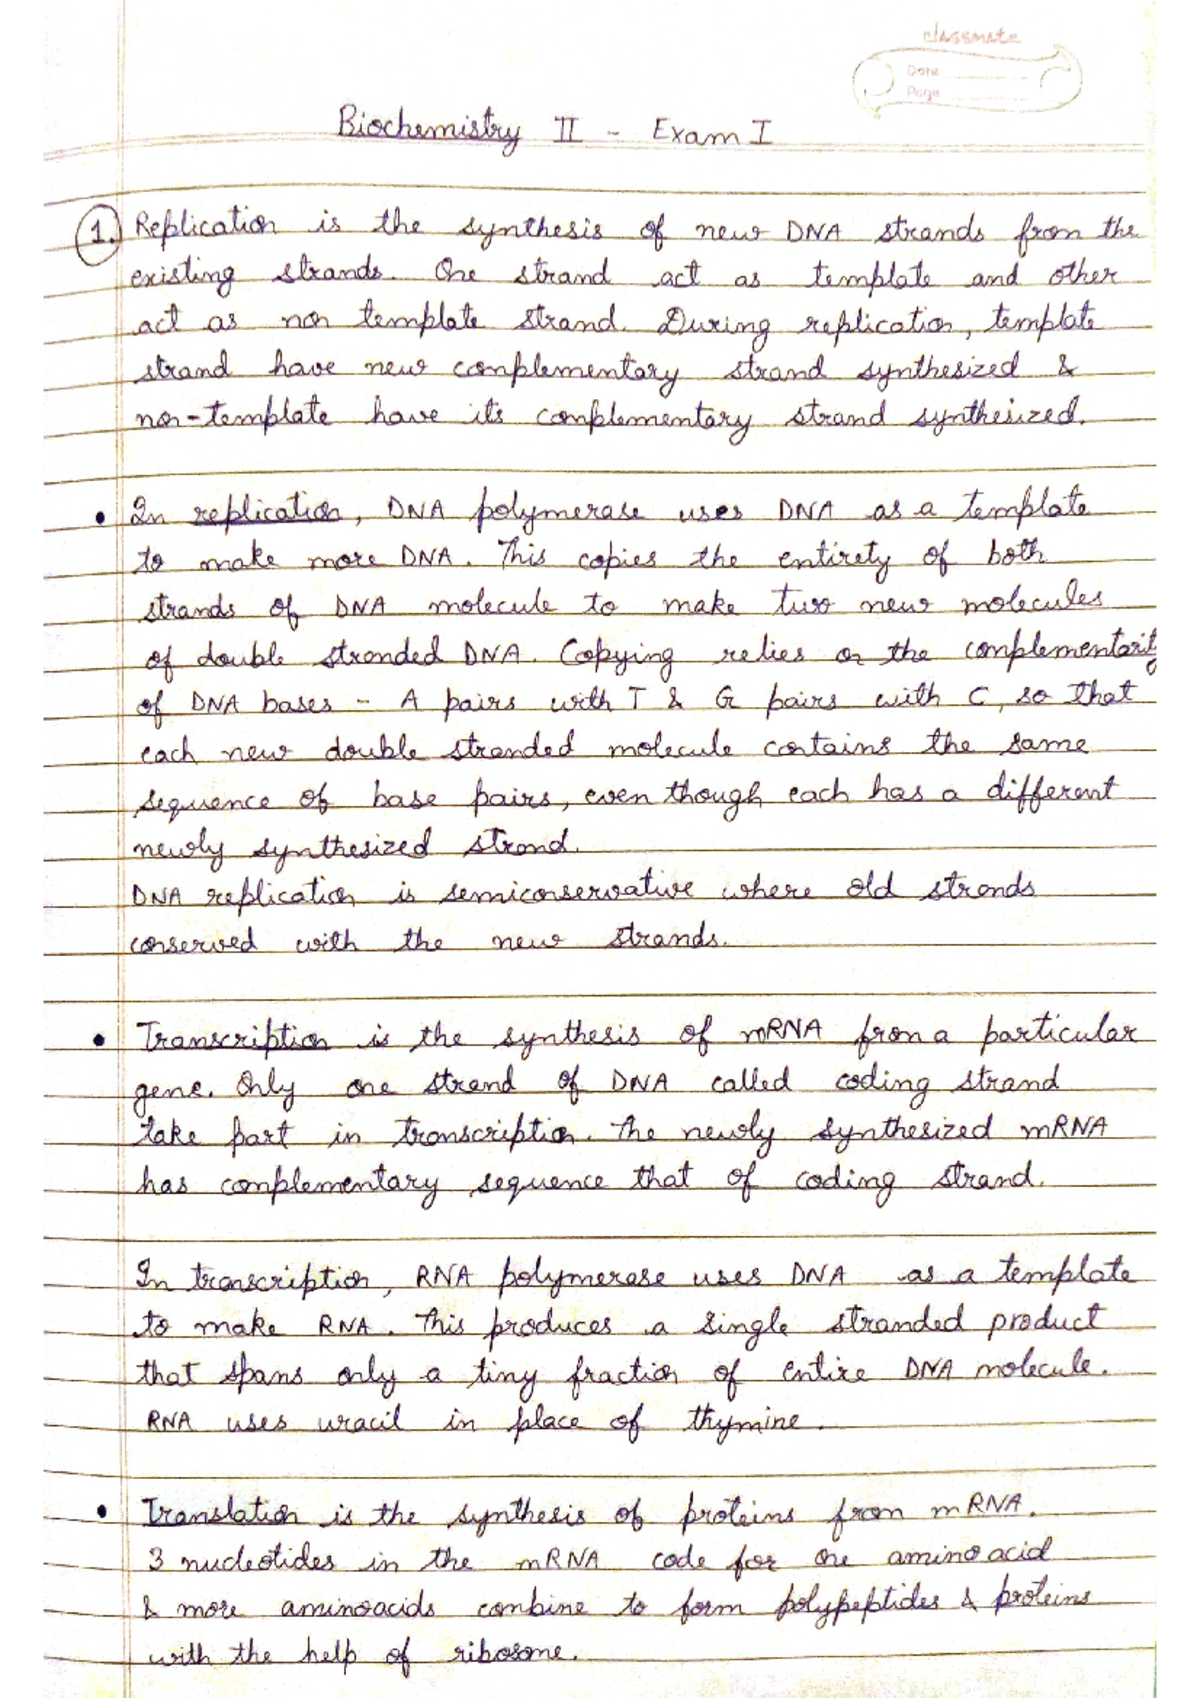 classmate
Date
Page
Biochemistry II - Exam I
1. Replication is the synthesis of new DNA strands from the
existing strands. One strand act as template and other
act as non template strand. During replication, template
strand have new complementary strand synthesized &
non-template have its complementary strand synthesized.
• In replication, DNA polymerase uses DNA as a template
to make more DNA. This copies the entirety of both
strands of DNA molecule to make two new molecules
of double stranded DNA. Copying relies on the complementarity
of DNA bases - A pairs with T & G pairs with C, so that
each new double stranded molecule contains the same
sequence of base pairs, even though each has a different
newly synthesized strand.
DNA replication is semiconservative where old strands
conserved with the new strands.
• Transcription is the synthesis of mRNA from a particular
gene. Only one strand of DNA called coding strand
take part in transcription. The newly synthesized mRNA
has complementary sequence that of coding strand.
In transcription, RNA polymerase uses DNA as a template
to make RNA. This produces a single stranded product
that spans only a tiny fraction of entire DNA molecule.
RNA uses uracil in place of thymine.
• Translation is the synthesis of proteins from mRNA.
3 nucleotides in the mRNA code for one amino acid
& more aminoacids combine to form polypeptides & proteins
with the help of ribosome.